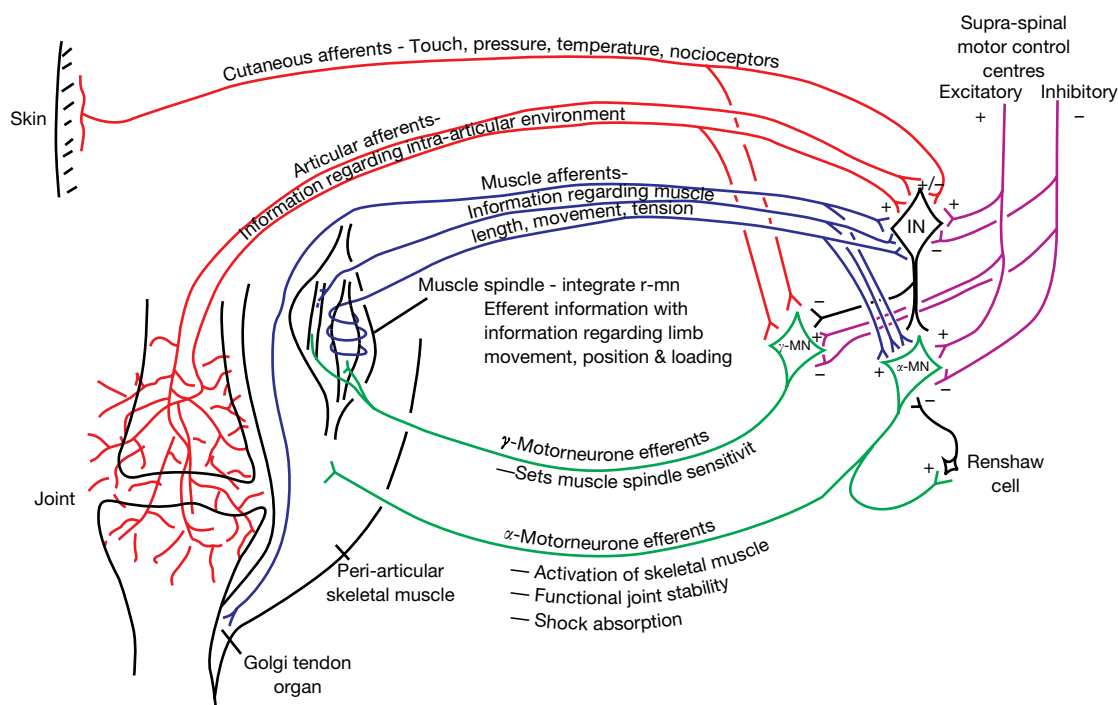 Supra-spinal
motor control
centres
Excitatory
Inhibitory
+
−
Cutaneous afferents - Touch, pressure, temperature, nocioceptors
Skin
Articular afferents-
Information regarding intra-articular environment
Muscle afferents-
Information regarding muscle
length, movement, tension
+/−
+
+
IN
−
Muscle spindle - integrate r-mn
Efferent information with
information regarding limb
movement, position & loading
−
+
γ-MN
−
+
+
α-MN
−
−
γ-Motorneurone efferents
—Sets muscle spindle sensitivit
+
Renshaw
cell
Joint
α-Motorneurone efferents
— Activation of skeletal muscle
— Functional joint stability
— Shock absorption
Peri-articular
skeletal muscle
Golgi tendon
organ